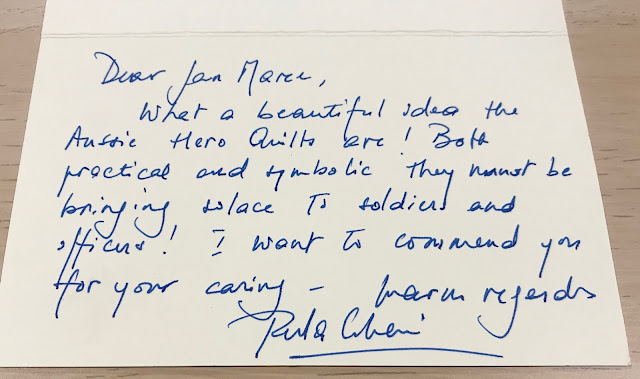 Dear Jan Maree,
What a beautiful idea the
Aussie Hero Quilts are! Both
practical and symbolic they must be
bringing solace to soldiers and
officers! I want to commend you
for your caring – Warm regards